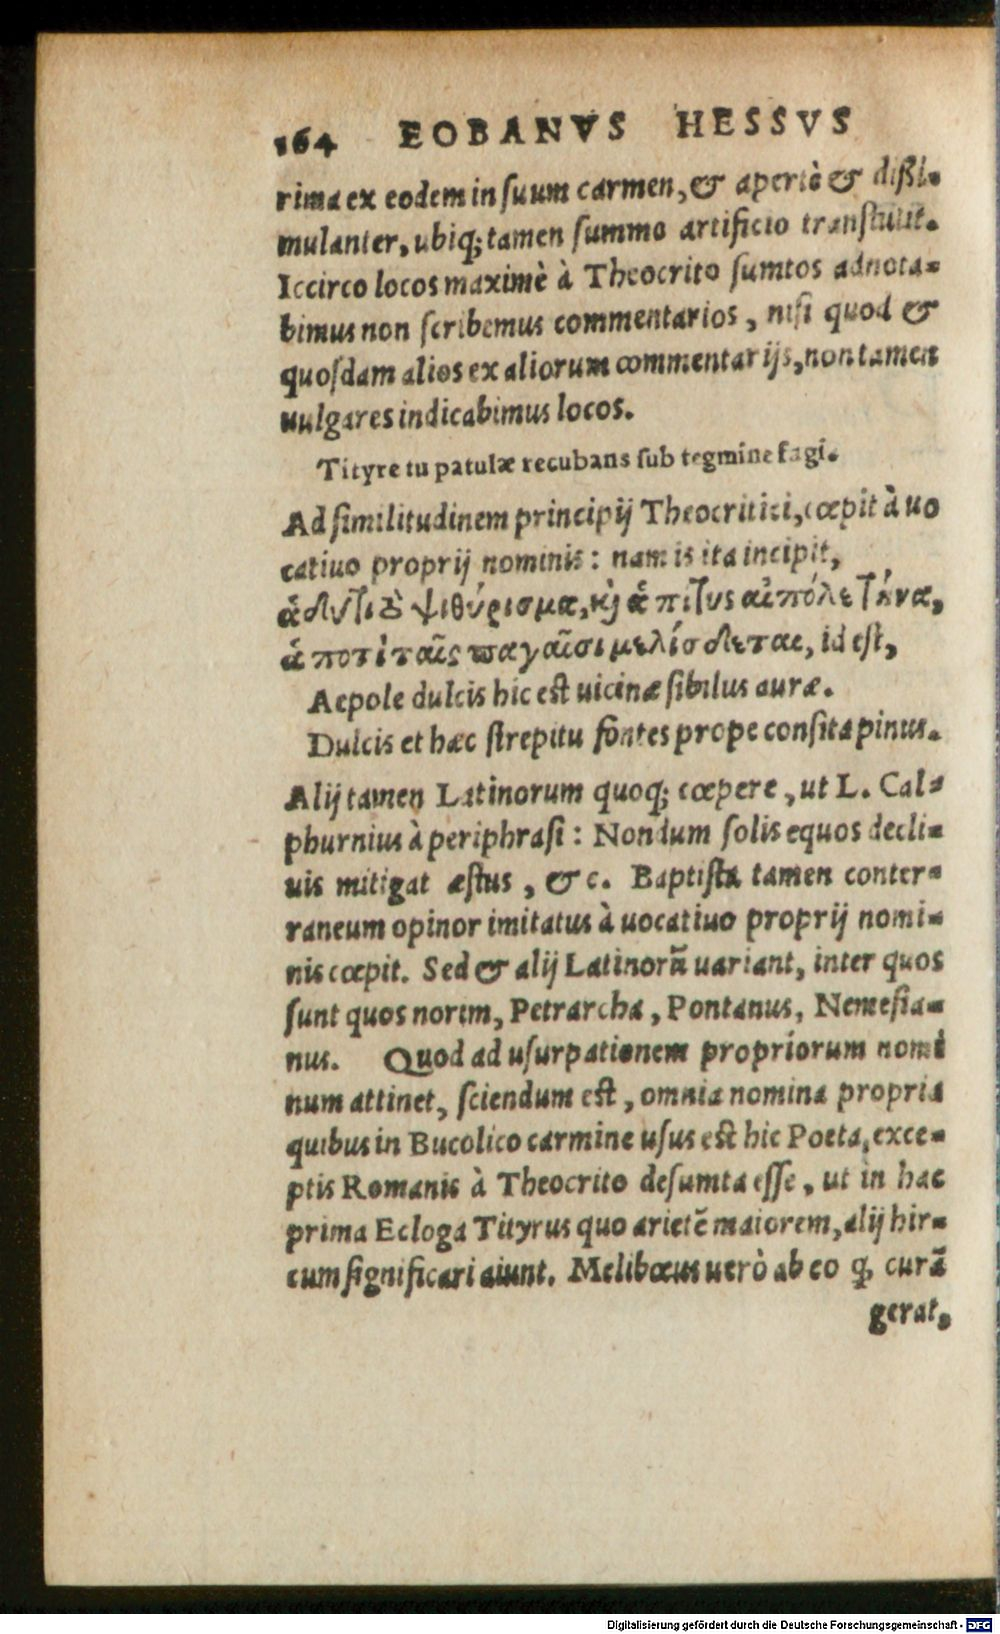 164 EOBANVS HESSVS
rima ex eodem in suum carmen, & apertè & dißi-
mulanter, ubiq; tamen summo artificio transtulit.
Iccirco locos maximè à Theocrito sumtos adnota-
bimus non scribemus commentarios, nisi quod &
quosdam alios ex aliorum commentarijs, non tamen
uulgares indicabimus locos.
Tityre tu patulæ recubans sub tegmine fagi.
Ad similitudinem principij Theocritici, cœpit à uo
catiuo proprij nominis: nam is ita incipit,
ἁδύ τι τὸ ψιθύρισμα, καὶ ἁ πίτυς αἰπόλε τήνα,
ἁ ποτὶ ταῖς παγαῖσι μελίσδεται, id est,
Aepole dulcis hic est uicinæ sibilus auræ.
Dulcis et hæc strepitu fontes prope consita pinus.
Alij tamen Latinorum quoq; cœpere, ut L. Cal-
phurnius à periphrasi: Nondum solis equos decli-
uis mitigat æstus, &c. Baptista tamen conter-
raneum opinor imitatus à uocatiuo proprij nomi-
nis cœpit. Sed & alij Latinorũ uariant, inter quos
sunt quos norim, Petrarcha, Pontanus, Nemesia-
nus. Quod ad usurpationem propriorum nomi
num attinet, sciendum est, omnia nomina propria
quibus in Bucolico carmine usus est hic Poeta, exce-
ptis Romanis à Theocrito desumta esse, ut in hac
prima Ecloga Tityrus quo arietẽ maiorem, alij hir-
cum significari aiunt. Melibœus uerò ab eo q; curã
gerat,
Digitalisierung gefördert durch die Deutsche Forschungsgemeinschaft - DFG